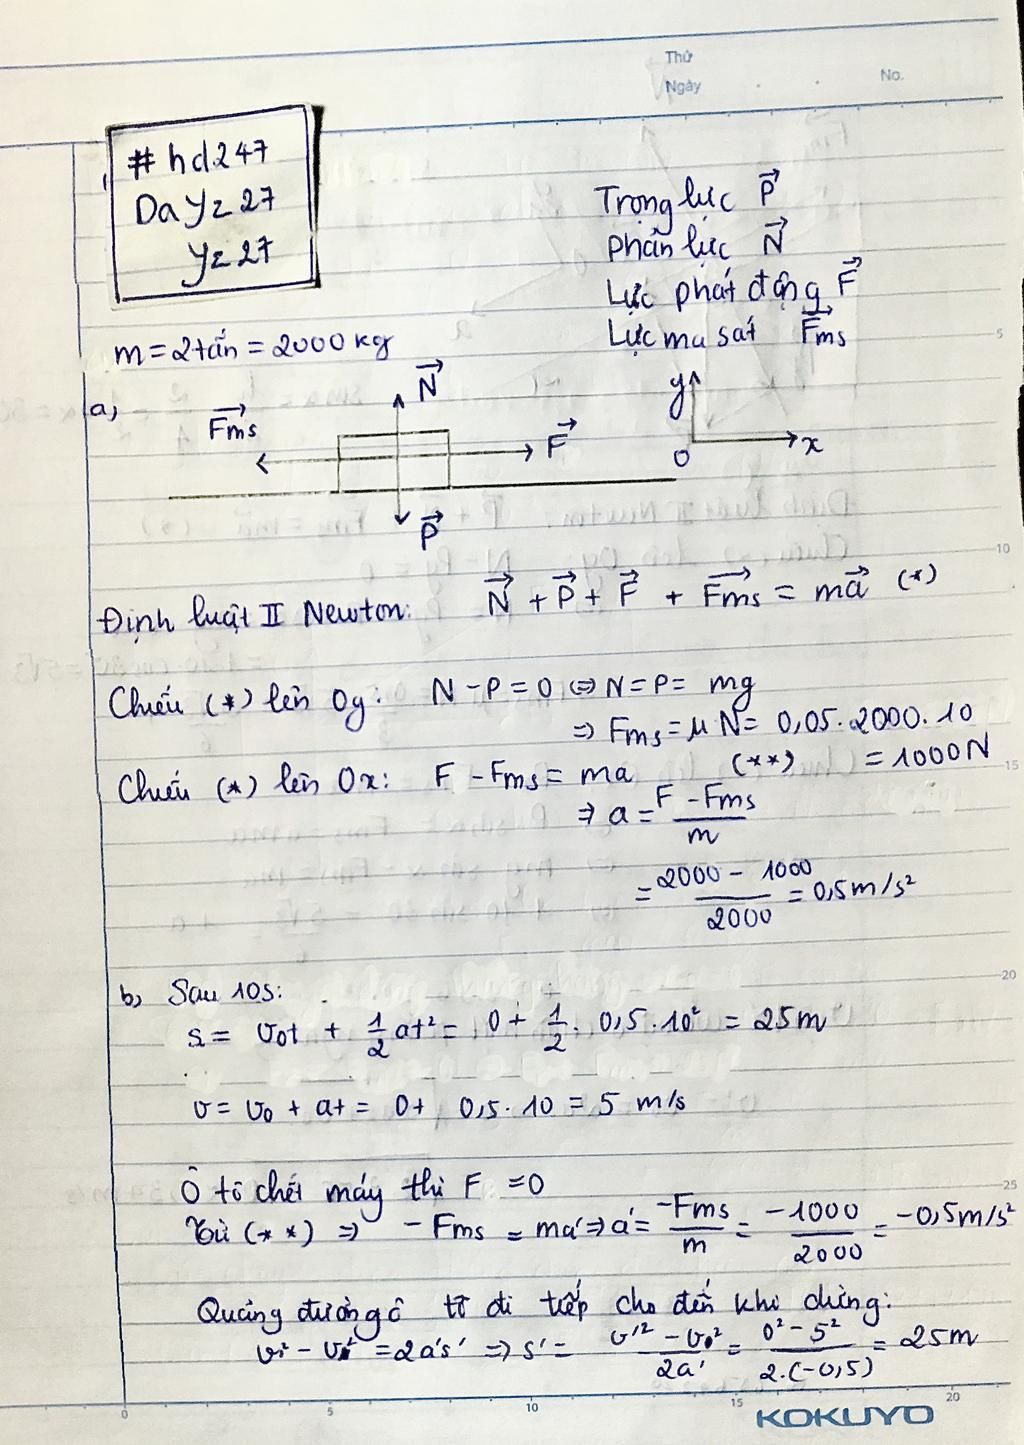 Thứ
Ngày . . No.
# hd247
DaYz27
Yz27
Trọng lực P⃗
Phản lực N⃗
Lực phát động F⃗
Lực ma sát F⃗ms
m = 2 tấn = 2000 kg
a,
N⃗
F⃗ms
F⃗
P⃗
y
O
x
Định luật II Newton: N⃗ + P⃗ + F⃗ + F⃗ms = ma⃗ (*)
Chiếu (*) lên Oy: N - P = 0 ⇔ N = P = mg
⇒ Fms = μN = 0,05.2000.10
= 1000N
Chiếu (*) lên Ox: F - Fms = ma (**)
⇒ a = (F - Fms)/m
= (2000 - 1000)/2000 = 0,5m/s²
b, Sau 10s:
s = v₀t + 1/2 at² = 0 + 1/2 . 0,5.10² = 25m
v = v₀ + at = 0 + 0,5.10 = 5 m/s
Ô tô chết máy thì F = 0
Từ (**) ⇒ - Fms = ma' ⇒ a' = -Fms/m = -1000/2000 = -0,5m/s²
Quãng đường ô tô đi tiếp cho đến khi dừng:
v'² - v₀² = 2a's' ⇒ s' = (v'² - v₀²)/2a' = (0² - 5²)/2.(-0,5) = 25m
5
10
15
20
25
0 5 10 15 20
KOKUYO